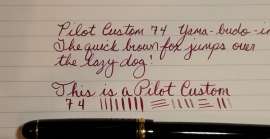 Pilot Custom 74 Yama-budo-in
The quick brown fox jumps over
the lazy dog!
This is a Pilot Custom
74